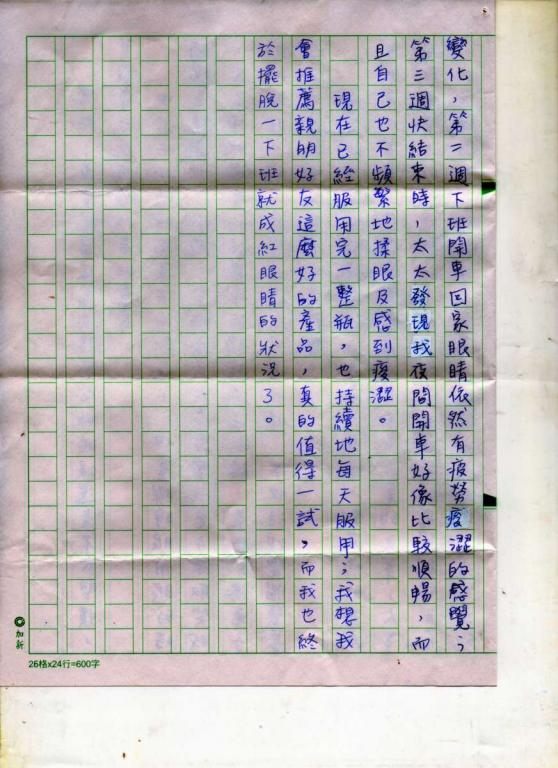 變化，第二週下班開車回家眼睛依然有疲勞痠澀的感覺；
第三週快結束時，太太發現我夜間開車好像比較順暢，而
且自己也不頻繁地揉眼及感到痠澀。
現在已經服用完一整瓶，也持續地每天服用；我想我
會推薦親朋好友這麼好的產品，真的值得一試，而我也終
於擺脫一下班就成紅眼睛的狀況了。
加新
25格x24行=600字